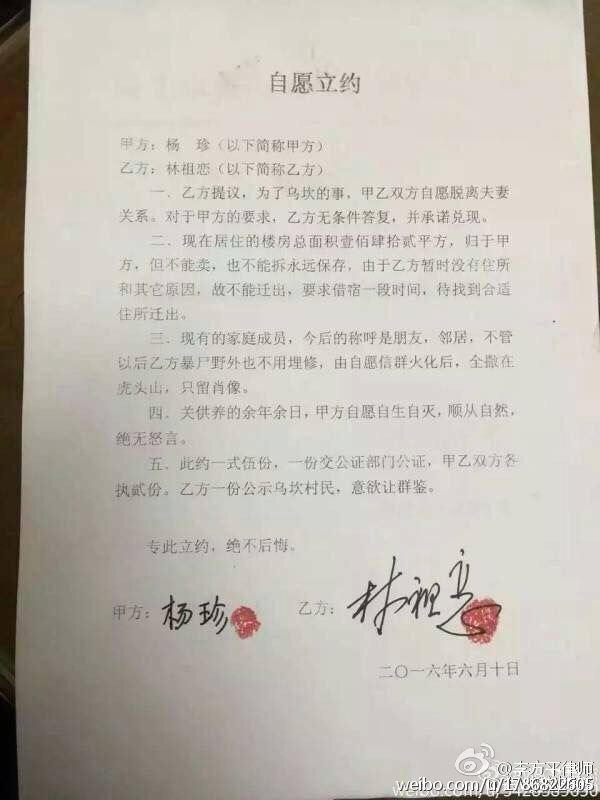 自愿立约
甲方：杨　珍（以下简称甲方）
乙方：林祖恋（以下简称乙方）
一．乙方提议，为了乌坎的事，甲乙双方自愿脱离夫妻
关系。对于甲方的要求，乙方无条件答复，并承诺兑现。
二．现在居住的楼房总面积壹佰肆拾贰平方，归于甲
方，但不能卖，也不能拆永远保存，由于乙方暂时没有住所
和其它原因，故不能迁出，要求借宿一段时间，待找到合适
住所迁出。
三．现有的家庭成员，今后的称呼是朋友，邻居，不管
以后乙方暴尸野外也不用埋修，由自愿信群火化后，全撒在
虎头山，只留肖像。
四．关供养的余年余日，甲方自愿自生自灭，顺从自然，
绝无怒言。
五．此约一式伍份，一份交公证部门公证，甲乙双方各
执贰份。乙方一份公示乌坎村民，意欲让群鉴。
专此立约，绝不后悔。
甲方：杨珍　乙方：林祖恋
二〇一六年六月十日
@李方平律师
weibo.com/u/1786822605